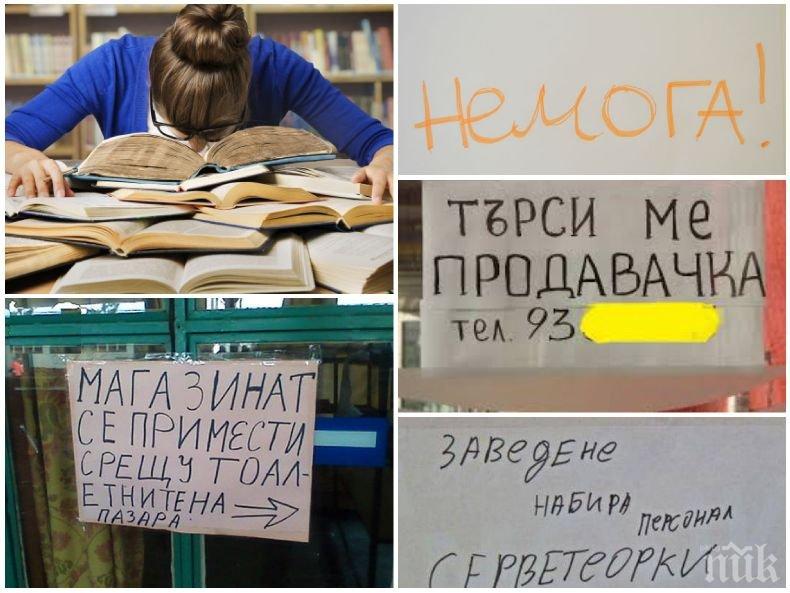 немОГА!
ТЪРСИ ме
ПРОДАВАЧКА
тел. 93
МАГАЗИНАТ
СЕ ПРИМЕСТИ
СРЕЩУ ТОАЛ-
ЕТНИТЕНА
ПАЗАРА
ЗАВеДЕНе
НАБИРА
ПЕРСОНАЛ
СЕРВЕТЕОРКИ
ПИК